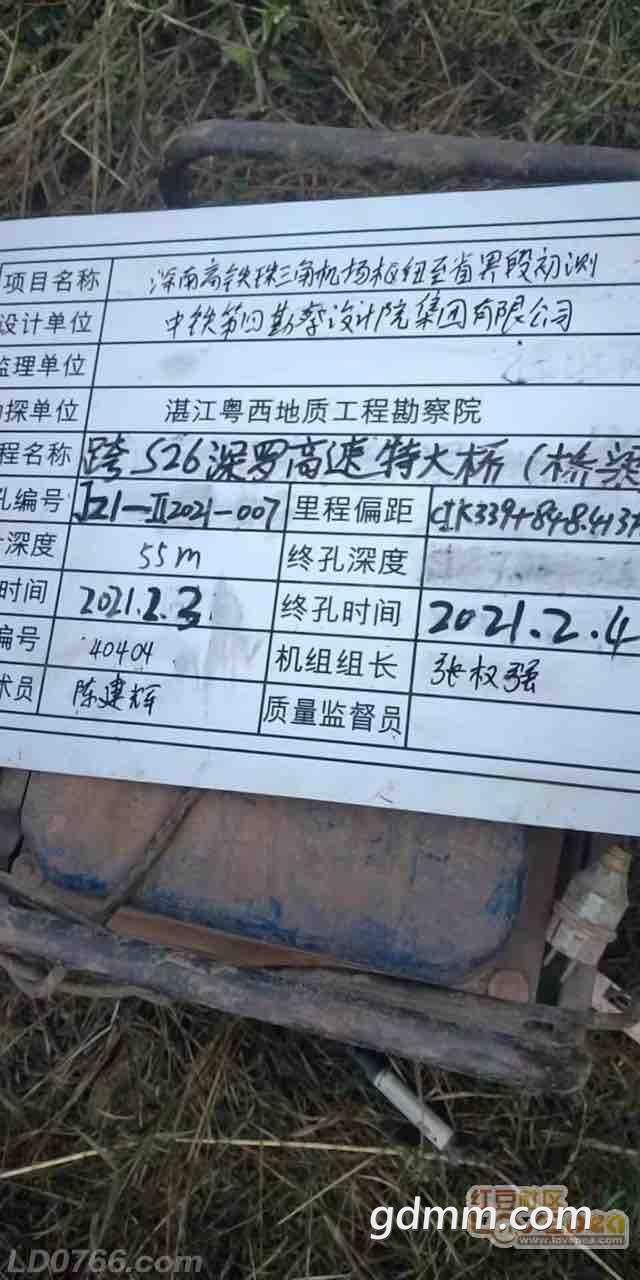 项目名称 深南高铁珠三角机场枢纽至省界段初测
设计单位 中铁第四勘察设计院集团有限公司
监理单位
探单位 湛江粤西地质工程勘察院
程名称 跨S26深罗高速特大桥(桥梁
孔编号 J21-II2021-007 里程偏距 CIK339+848.413
深度 55m 终孔深度
时间 2021.2.3 终孔时间 2021.2.4
编号 40404 机组组长 张权强
术员 陈建辉 质量监督员
红豆社区
gdmm.com
www.lovepea.com
LD0766.com